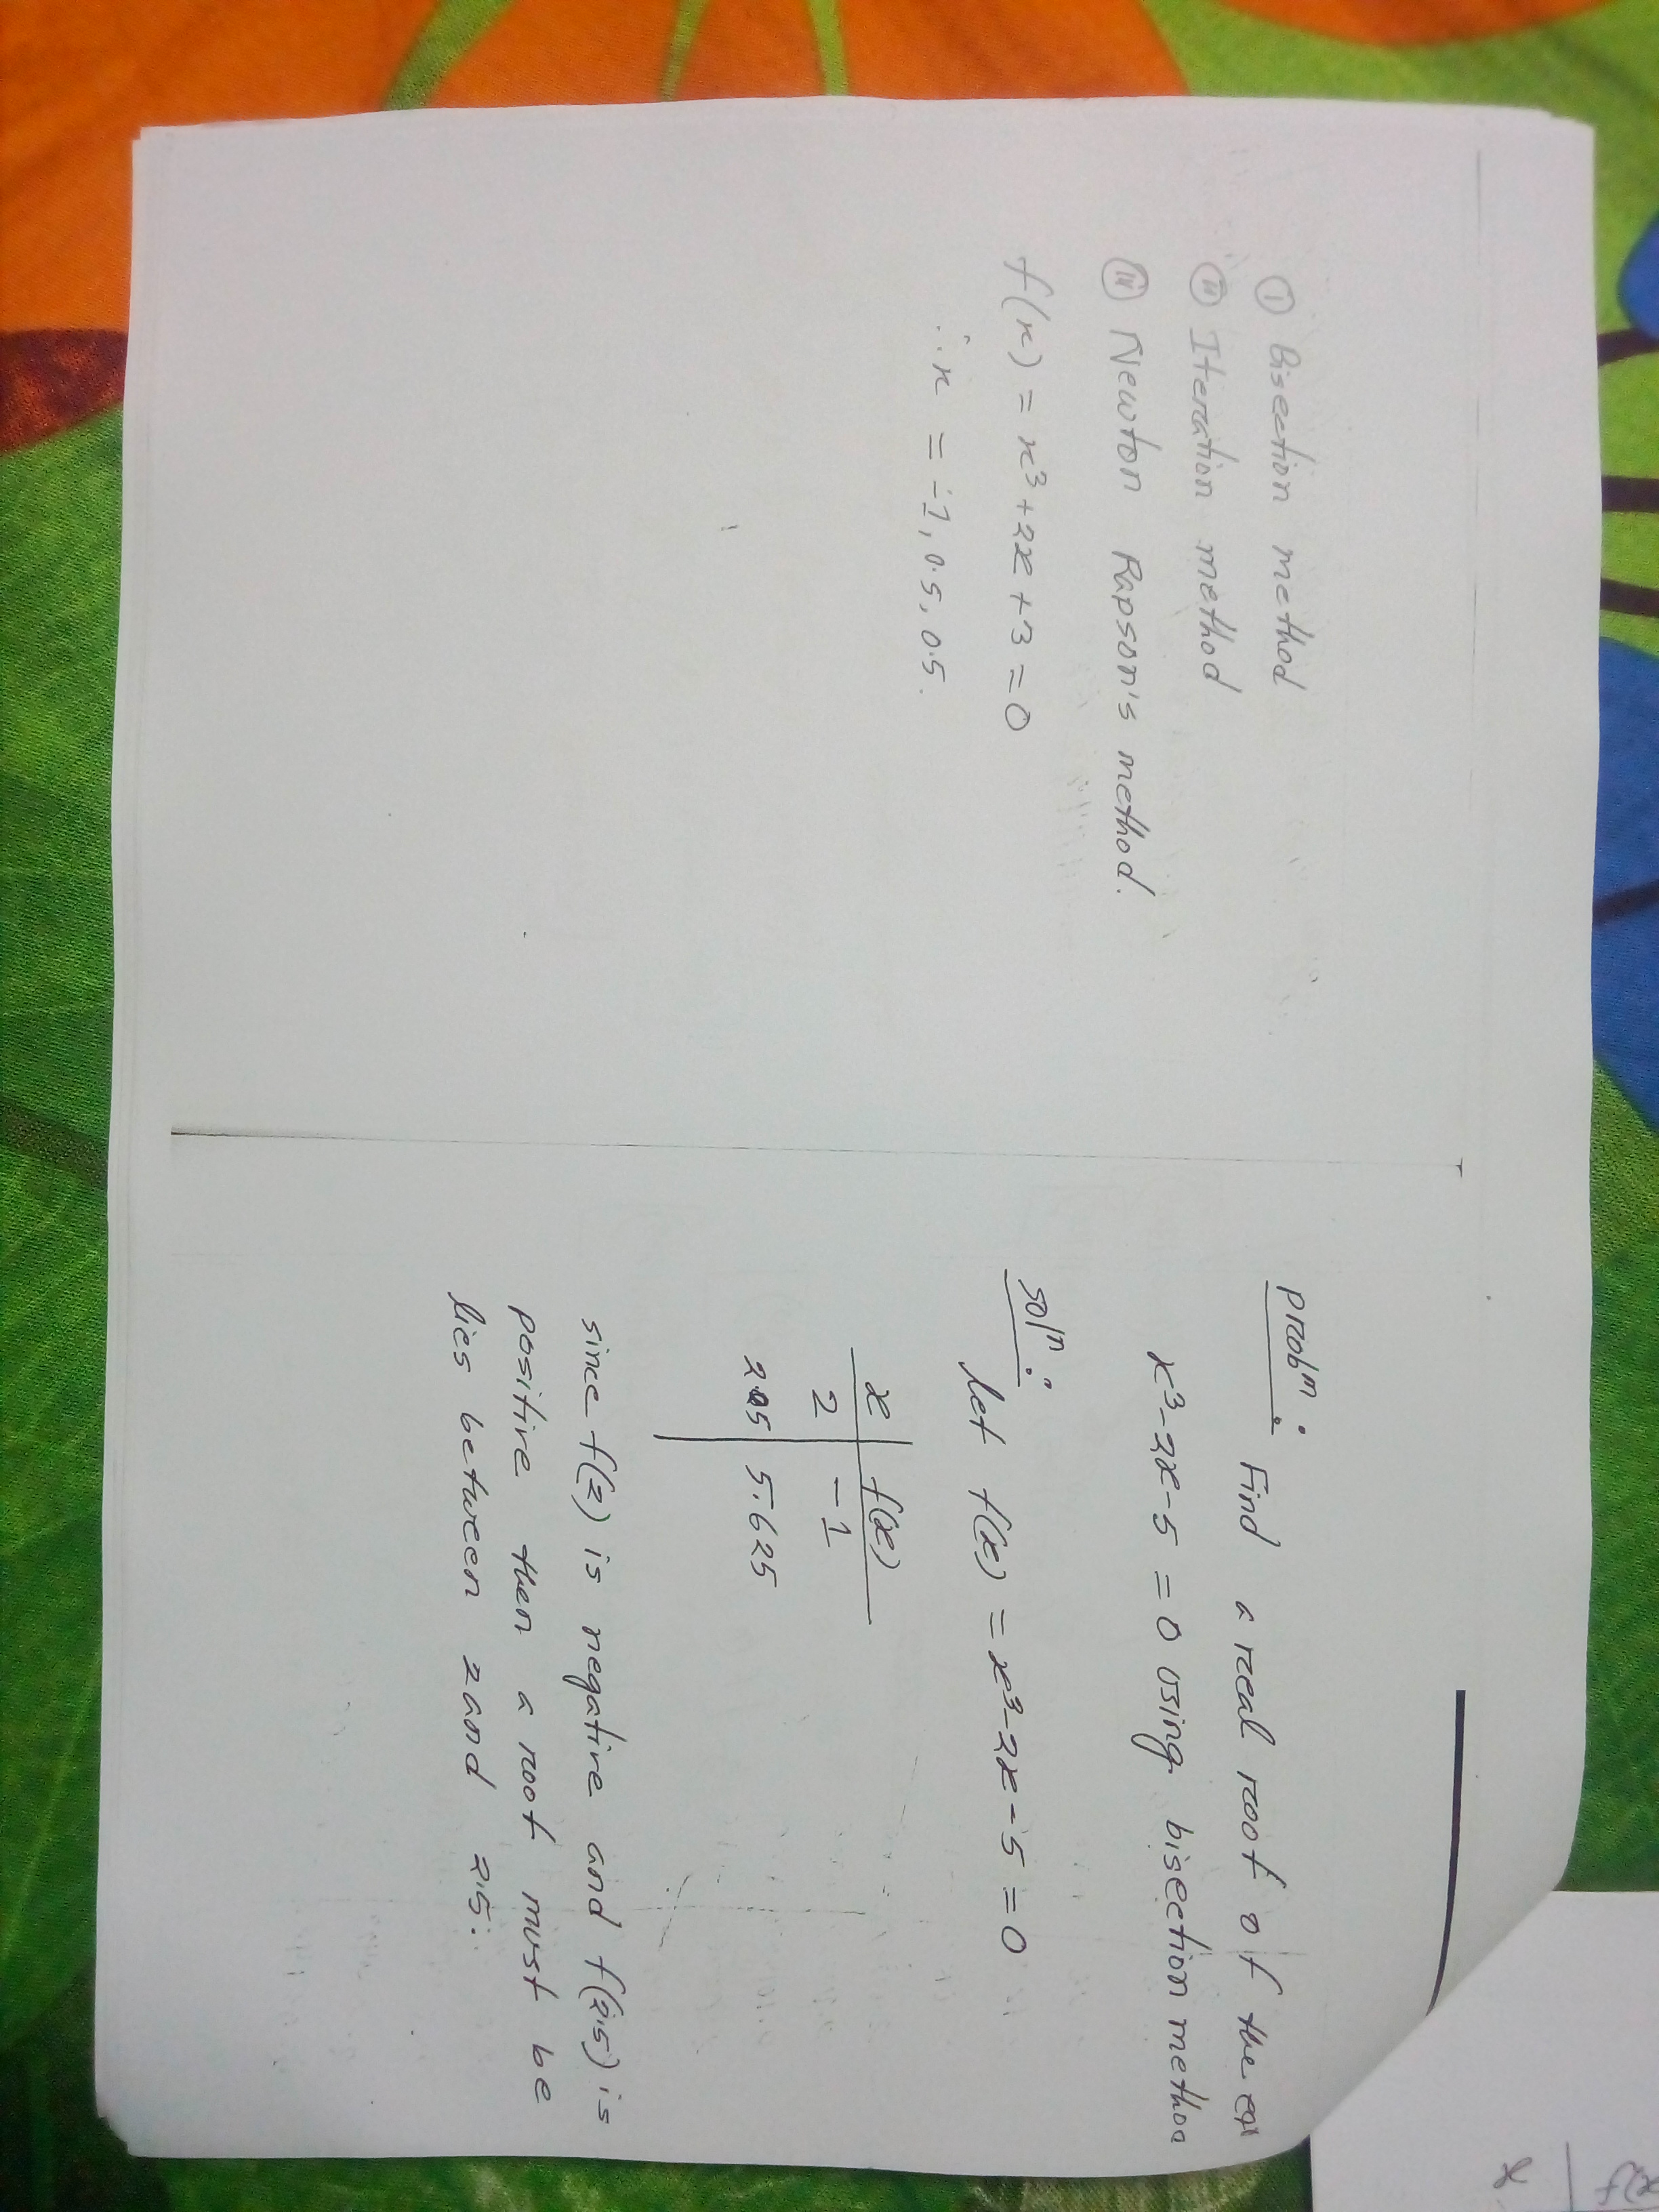 ① Bisection method
② Iteration method
③ Newton Rapson's method.
f(x) = x³+2x+3 = 0
∴ x = -1, 0.5, 0.5.
probᵐ :
Find a real root of the eq
x³-2x-5 = 0 using bisection method
solⁿ :
let f(x) = x³-2x-5 = 0
x | f(x)
2 | -1
2.5 | 5.625
since f(2) is negative and f(2.5) is
positive then a root must be
lies between 2 and 2.5.
x | f(x